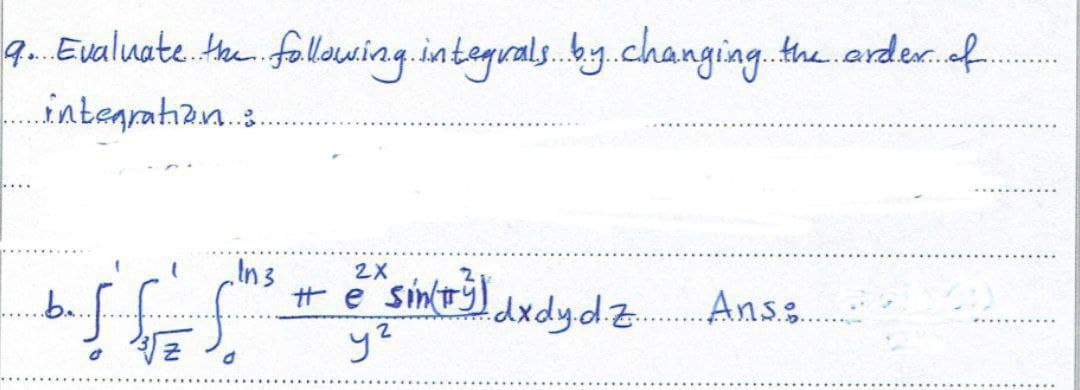 9. Evaluate the following integrals by changing the order of
integration :
b. ∫₀¹ ∫_{∛z}^{1} ∫₀^{ln 3} (π e^{2x} sin(πy²)) / y² dx dy dz Ans: